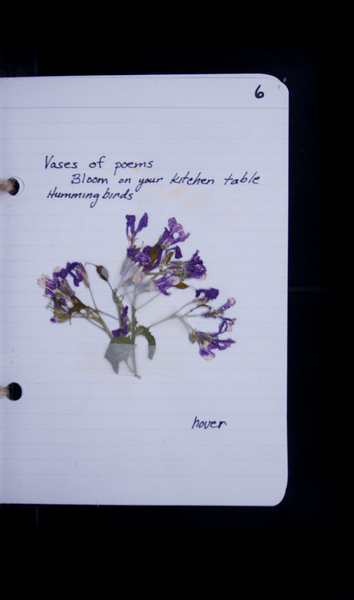 6
Vases of poems
Bloom on your kitchen table
Hummingbirds
hover